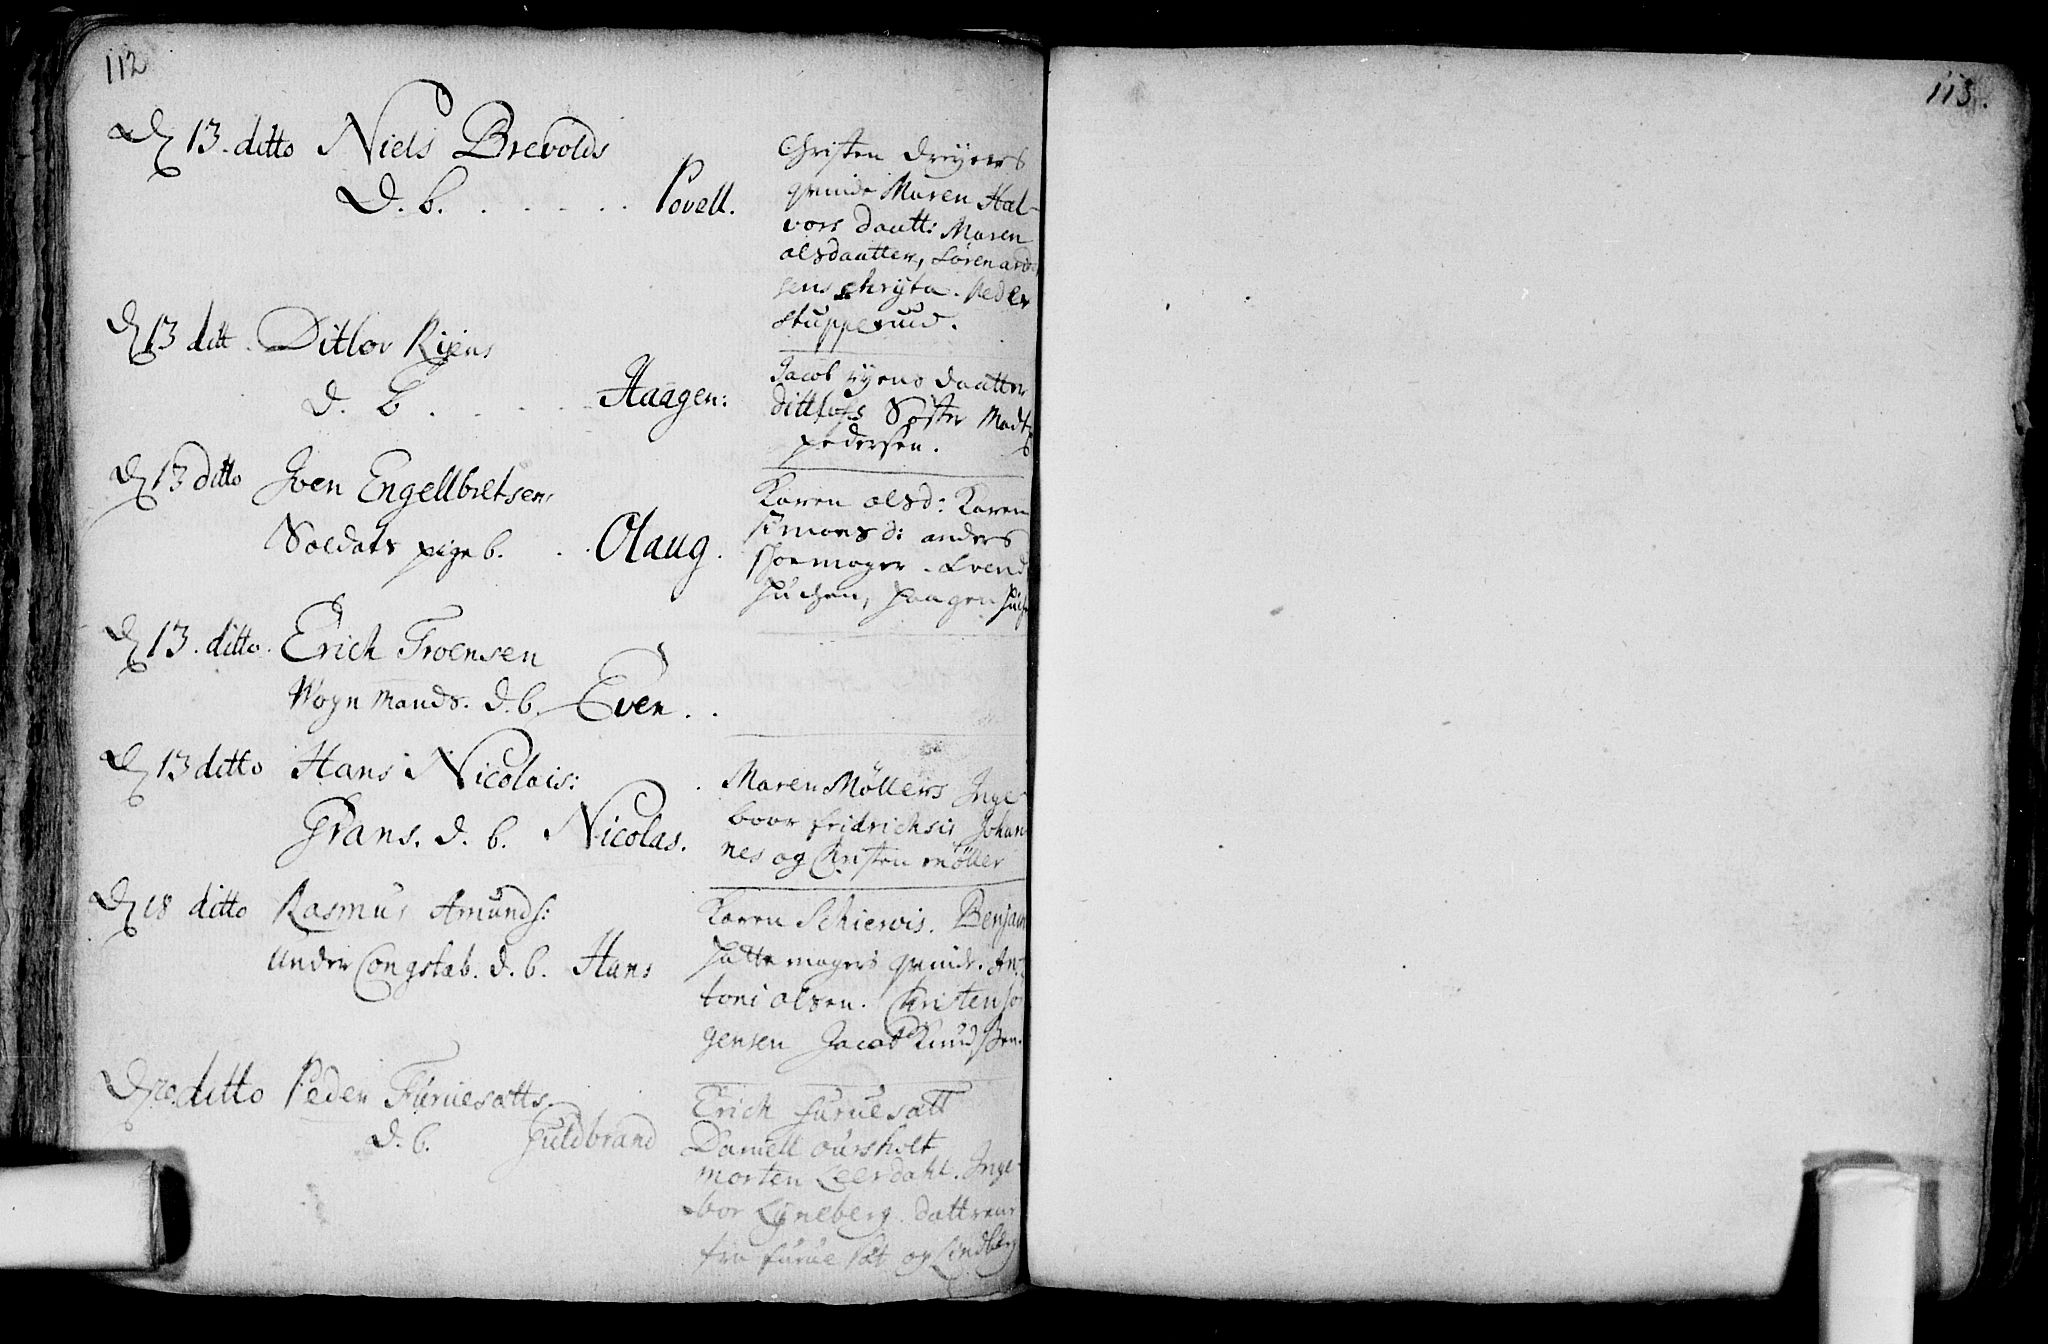 112
D 13. ditto Niels Brevolds
D. b. . . . . . Povell.
Christen dreyers
qvinde Maren Hal-
vors daatt: Maren
olsdaatter, Søren
Peder
Stupperuud.
D 13 ditt. Ditlov Rijens
d. b . . . . Haagen:
Jacob rijens daatter
dittlofs Søster Madts
pedersen.
D 13 ditto Joen Engellbretsen
Soldats pige b. . . Olaug.
Karen olsd: Karen
simonsd: anders
skoemager. Svend
haagen
D 13. ditto. Erich Troensen
Wogn mands. d. b. Even . .
D 13 ditto Hans Nicolais:
Grans. d. b. Nicolas.
Maren Møllers Inge-
boor fridrichsis Johan-
nes og Christen møller
D 18 ditto Rasmus Amunds:
under Congstab. d. b. Hans
Karen Schiervis. Benjam
hattemagers qvinde. An-
toni olsen. Christen Jør
gensen Jacob Knudssen.
D 20. ditto Peder Furuesatts.
d. b. Guldbrand
Erich furuesatt
Daniell oursholt
morten Leerdahl. Inge-
bor Lyneberg. dattrene
fra furue sat og Lindberg
113.